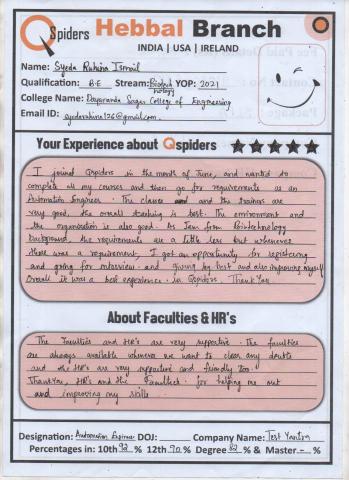 QSpiders Hebbal Branch
INDIA | USA | IRELAND
Name: Syeda Ruhina Ismail
Qualification: B.E Stream: Biotechnology YOP: 2021
College Name: Dayananda Sagar College of Engineering
Email ID: syedaruhina126@gmail.com
Your Experience about Qspiders
I joined Qspiders in the month of June, and wanted to
complete all my courses and then go for requirements as an
Automation Engineer. The classes and the trainers are
very good. The overall teaching is best. The environment and
the organisation is also good. As Iam from Biotechnology
Background, the requirements are a little less but whenever
there was a requirement, I got an opportunity for registering
and going for interview and giving my best and also improving myself
Overall it was a best experience in Qspiders. Thank You
About Faculties & HR's
The Faculties and HR's are very supportive. The faculties
are always available whenever we want to clear any doubts
and the HR's are very supportive and friendly too.
Thankyou, HR's and the Faculties for helping me out
and improving my skills
Designation: Automation Engineer DOJ: Company Name: Test Yantra
Percentages in: 10th 92 % 12th 70 % Degree 82 % & Master - %